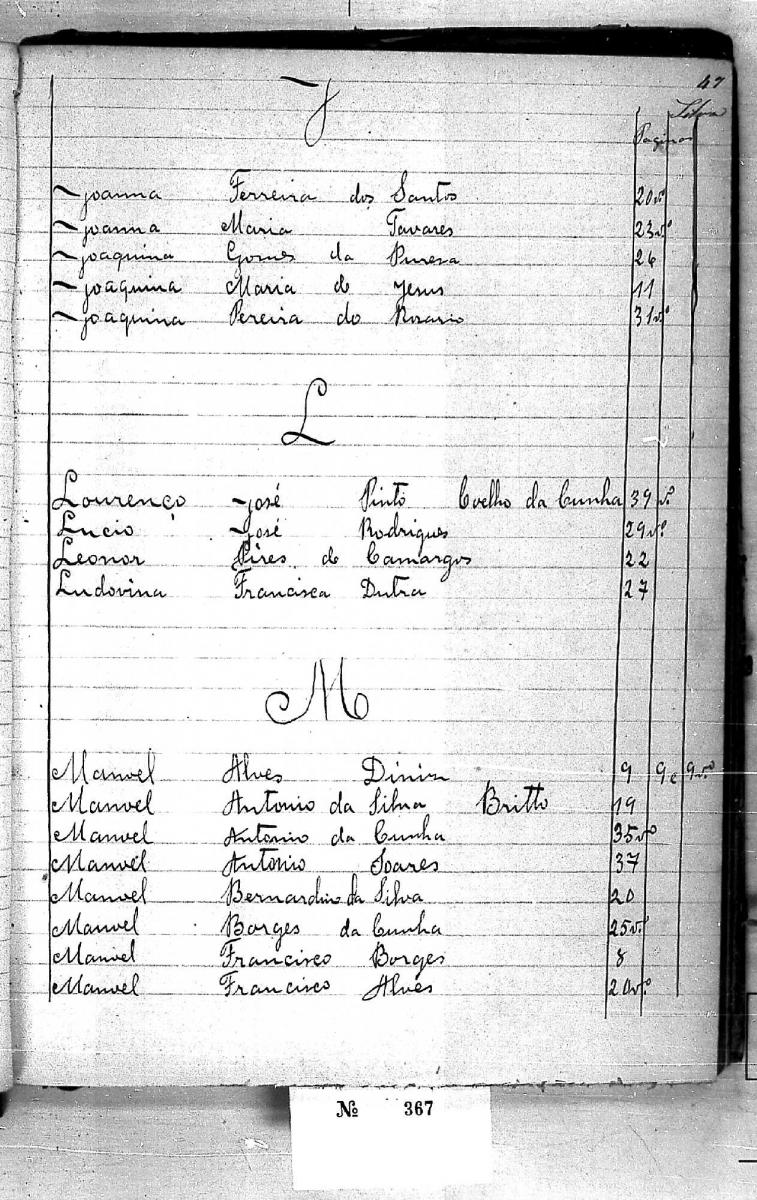 47
Silva
Paginas
J
Joanna Ferreira dos Santos 20v.º
Joanna Maria Tavares 23v.º
Joaquina Gomes da Puresa 26
Joaquina Maria de Jesus 11
Joaquina Pereira do Rosario 31v.º
L
Lourenço José Pinto Coelho da Cunha 39 v.º
Lucio José Rodrigues 29v.º
Leonor Pires de Camargos 22
Ludovina Francisca Dutra 27
M
Manoel Alves Diniz 9 9 e 9v.º
Manoel Antonio da Silva Britto 19
Manoel Antonio da Cunha 35v.º
Manoel Antonio Soares 37
Manoel Bernardino da Silva 20
Manoel Borges da Cunha 25v.º
Manoel Francisco Borges 8
Manoel Francisco Alves 20v.º
№ 367